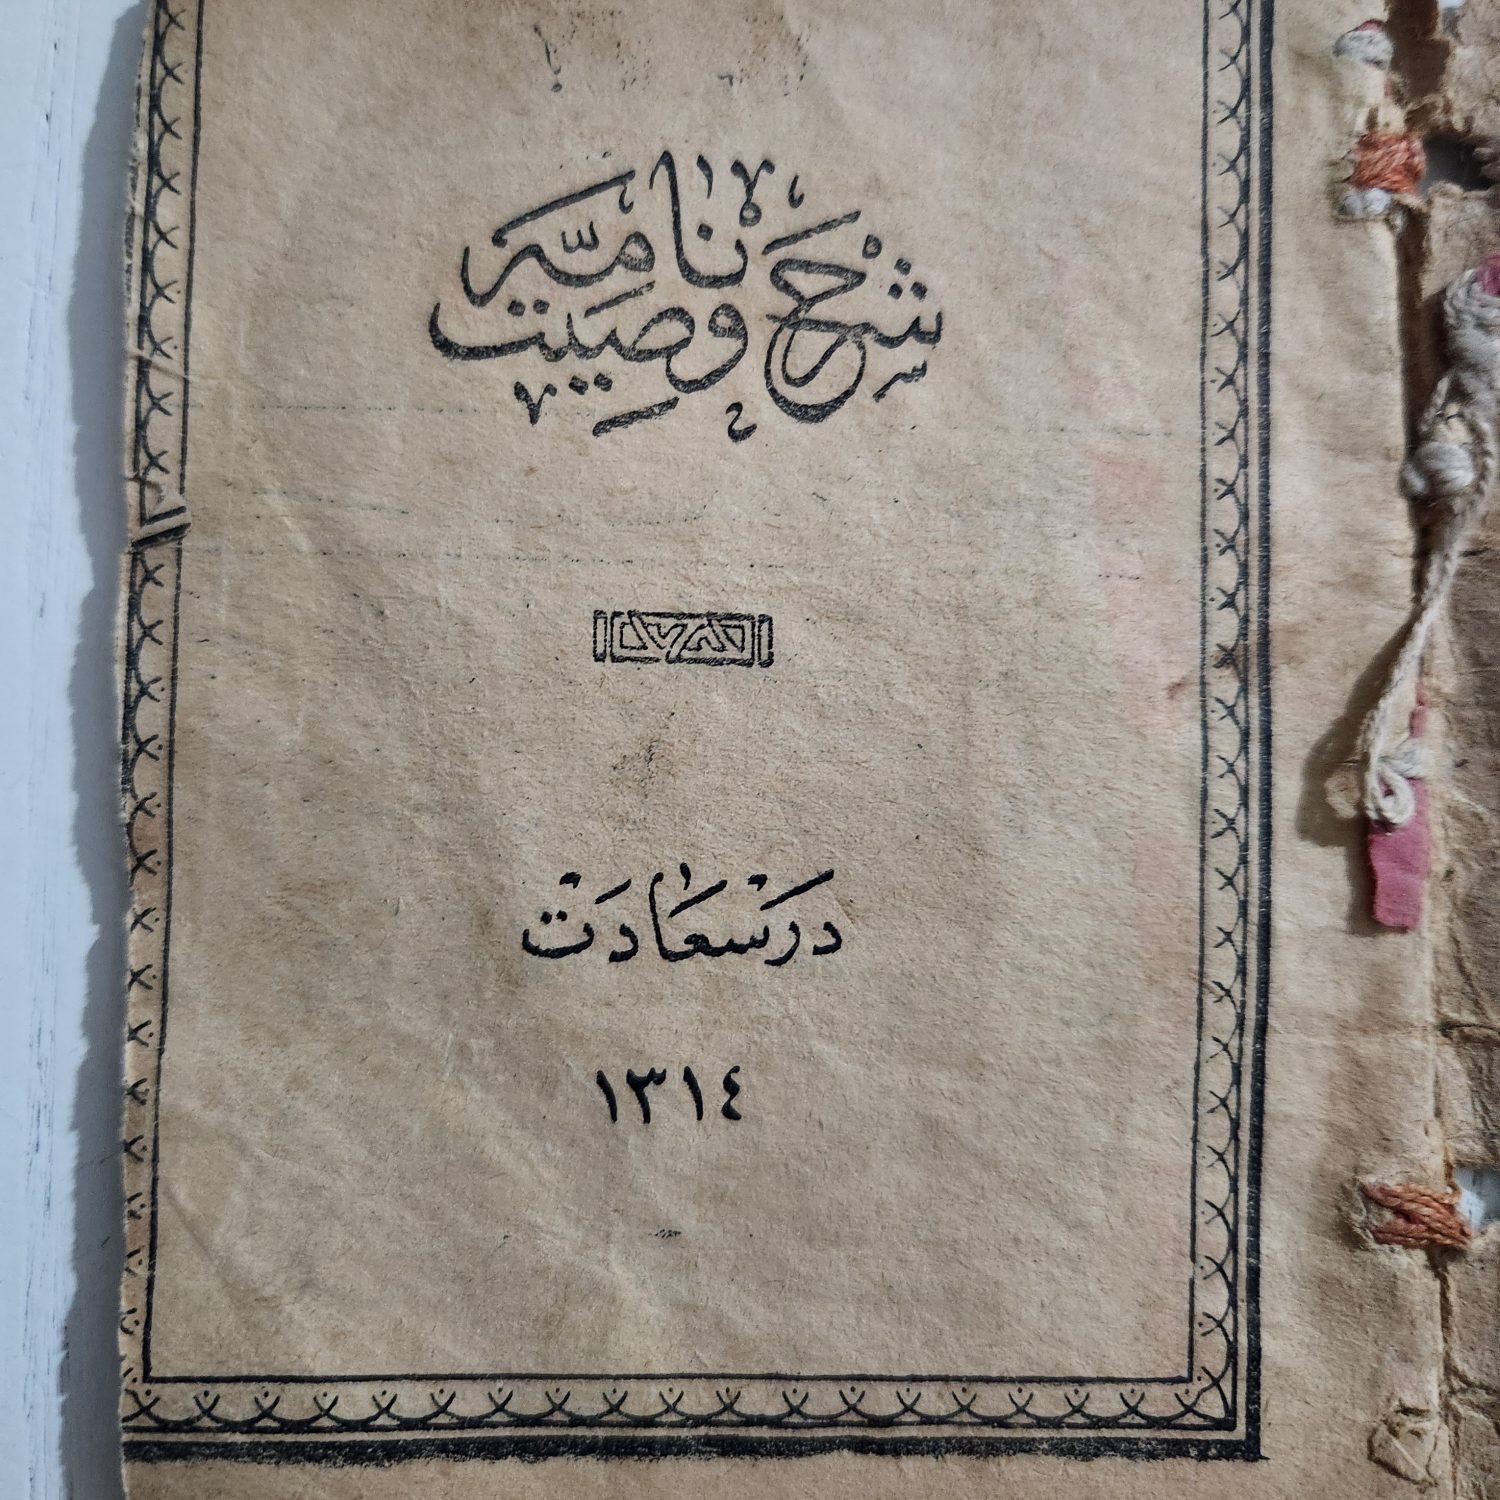 شرح وصیت نامه
در سعادت
١٣١٤